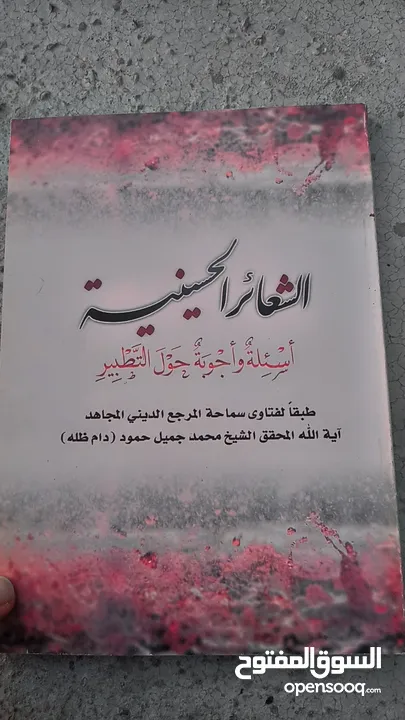 الشعائر الحسينية
أَسْئِلَةٌ وَأَجْوِبَةٌ حَوْلَ التَّطْبِيرِ
طبقاً لفتاوى سماحة المرجع الديني المجاهد
آية الله المحقق الشيخ محمد جميل حمود (دام ظله)
السوق المفتوح
opensooq.com